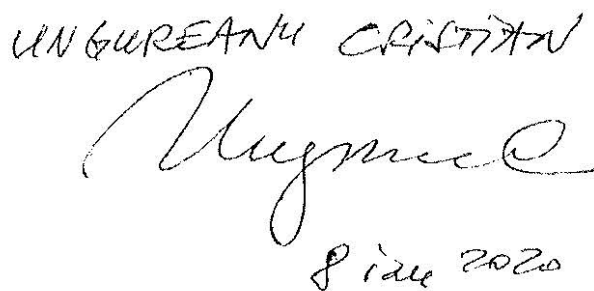 UNGUREANU CRISTIAN
8 ian 2020